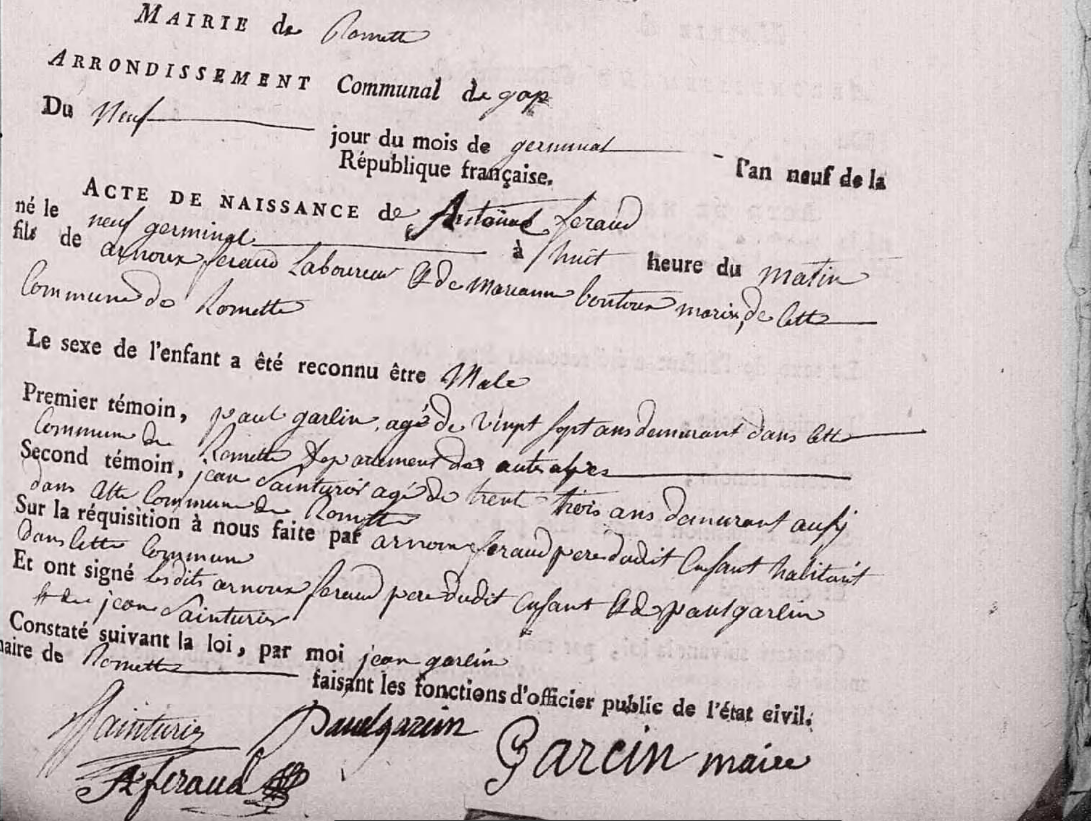 MAIRIE de Romette
ARRONDISSEMENT Communal de gap
Du Neuf jour du mois de germinal l'an neuf de la
République française.
ACTE DE NAISSANCE de Antoine feraud
né le neuf germinal à huit heure du matin
fils de arnoux feraud Laboureur & de mariann bontoux mariés de Cette
Commune de Romette
Le sexe de l'enfant a été reconnu être Male
Premier témoin, paul garcin, agé de vingt sept ans demurant dans Cette
Commun de Romette departement des autes alpes
Second témoin, jean Sainturis agé de trent trois ans demurant aussy
dans Cette Commun de Romette
Sur la réquisition à nous faite par arnoux feraud pere dudit Enfant habitant
dans Cette Commun
Et ont signé lesdits arnoux feraud pere dudit Enfant & de paul garcin
& de jean Sainturis
Constaté suivant la loi, par moi jean garcin
maire de Romette faisant les fonctions d'officier public de l'état civil.
Sainturis Paul garcin
Garcin maire
feraud